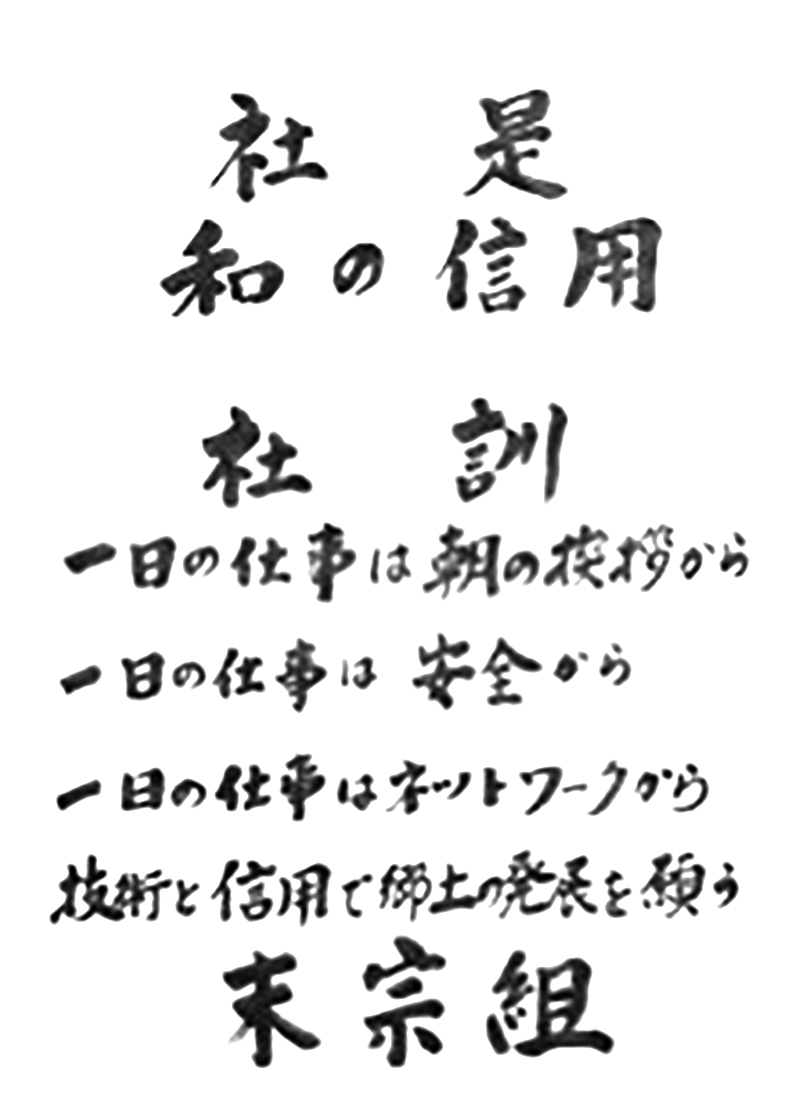 社是
和の信用
社訓
一日の仕事は朝の挨拶から
一日の仕事は安全から
一日の仕事はネットワークから
技術と信用で郷土の発展を願う
末宗組